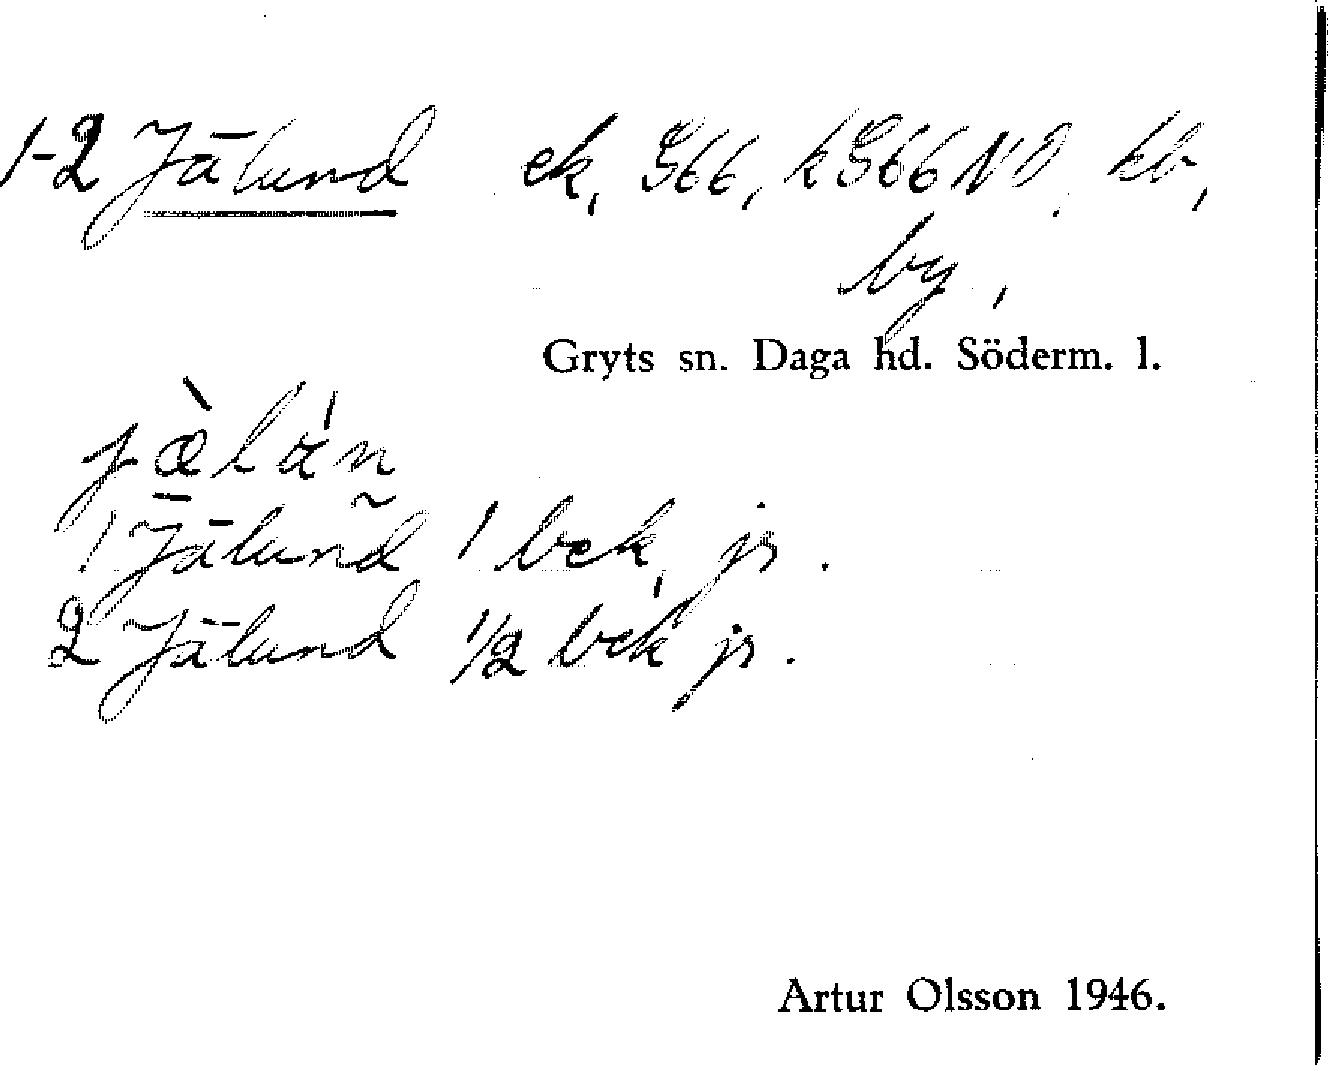 1-2 Jälund ek, G66, kG66NO, kb,
by,
Gryts sn. Daga hd. Söderm. l.
jæ̀lán
1 Jälund 1 bek, jr.
2 Jälund 1/2 bek jr.
Artur Olsson 1946.